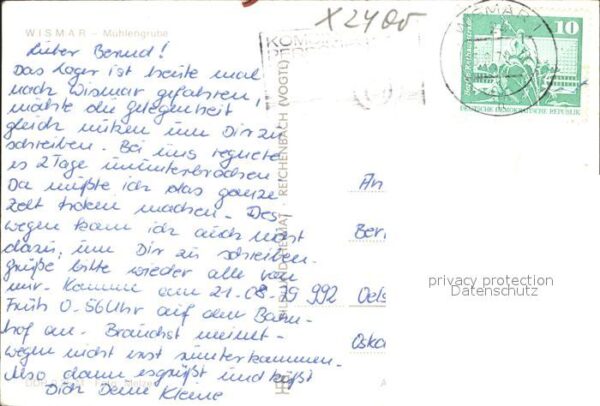 X2400
WISMAR - Mühlengrube
WISMAR
10
Berlin, Rathausstraße
DEUTSCHE DEMOKRATISCHE REPUBLIK
Lieber Bernd!
Das Lager ist heute mal
nach Wismar gefahren,
möchte die gelegenheit
gleich nutzen um Dir zu
schreiben. Bei uns regnete
es 2 Tage ununterbrochen
Da mußte ich das ganze
Zelt troken machen. Des-
wegen kam ich auch nicht
dazu, um Dir zu schreiben.
grüße bitte wieder alle von
mir. Komme am 21.08.79
Früh 0.56 Uhr auf dem Bahn-
hof an. Brauchst meinet-
wegen nicht erst runterkommen.
Also dann es grüßt und küßt
Dich Deine Kleine
BILD UND HEIMAT · REICHENBACH (VOGTL)
An
Ber
992 Oels
Oska
privacy protection
Datenschutz